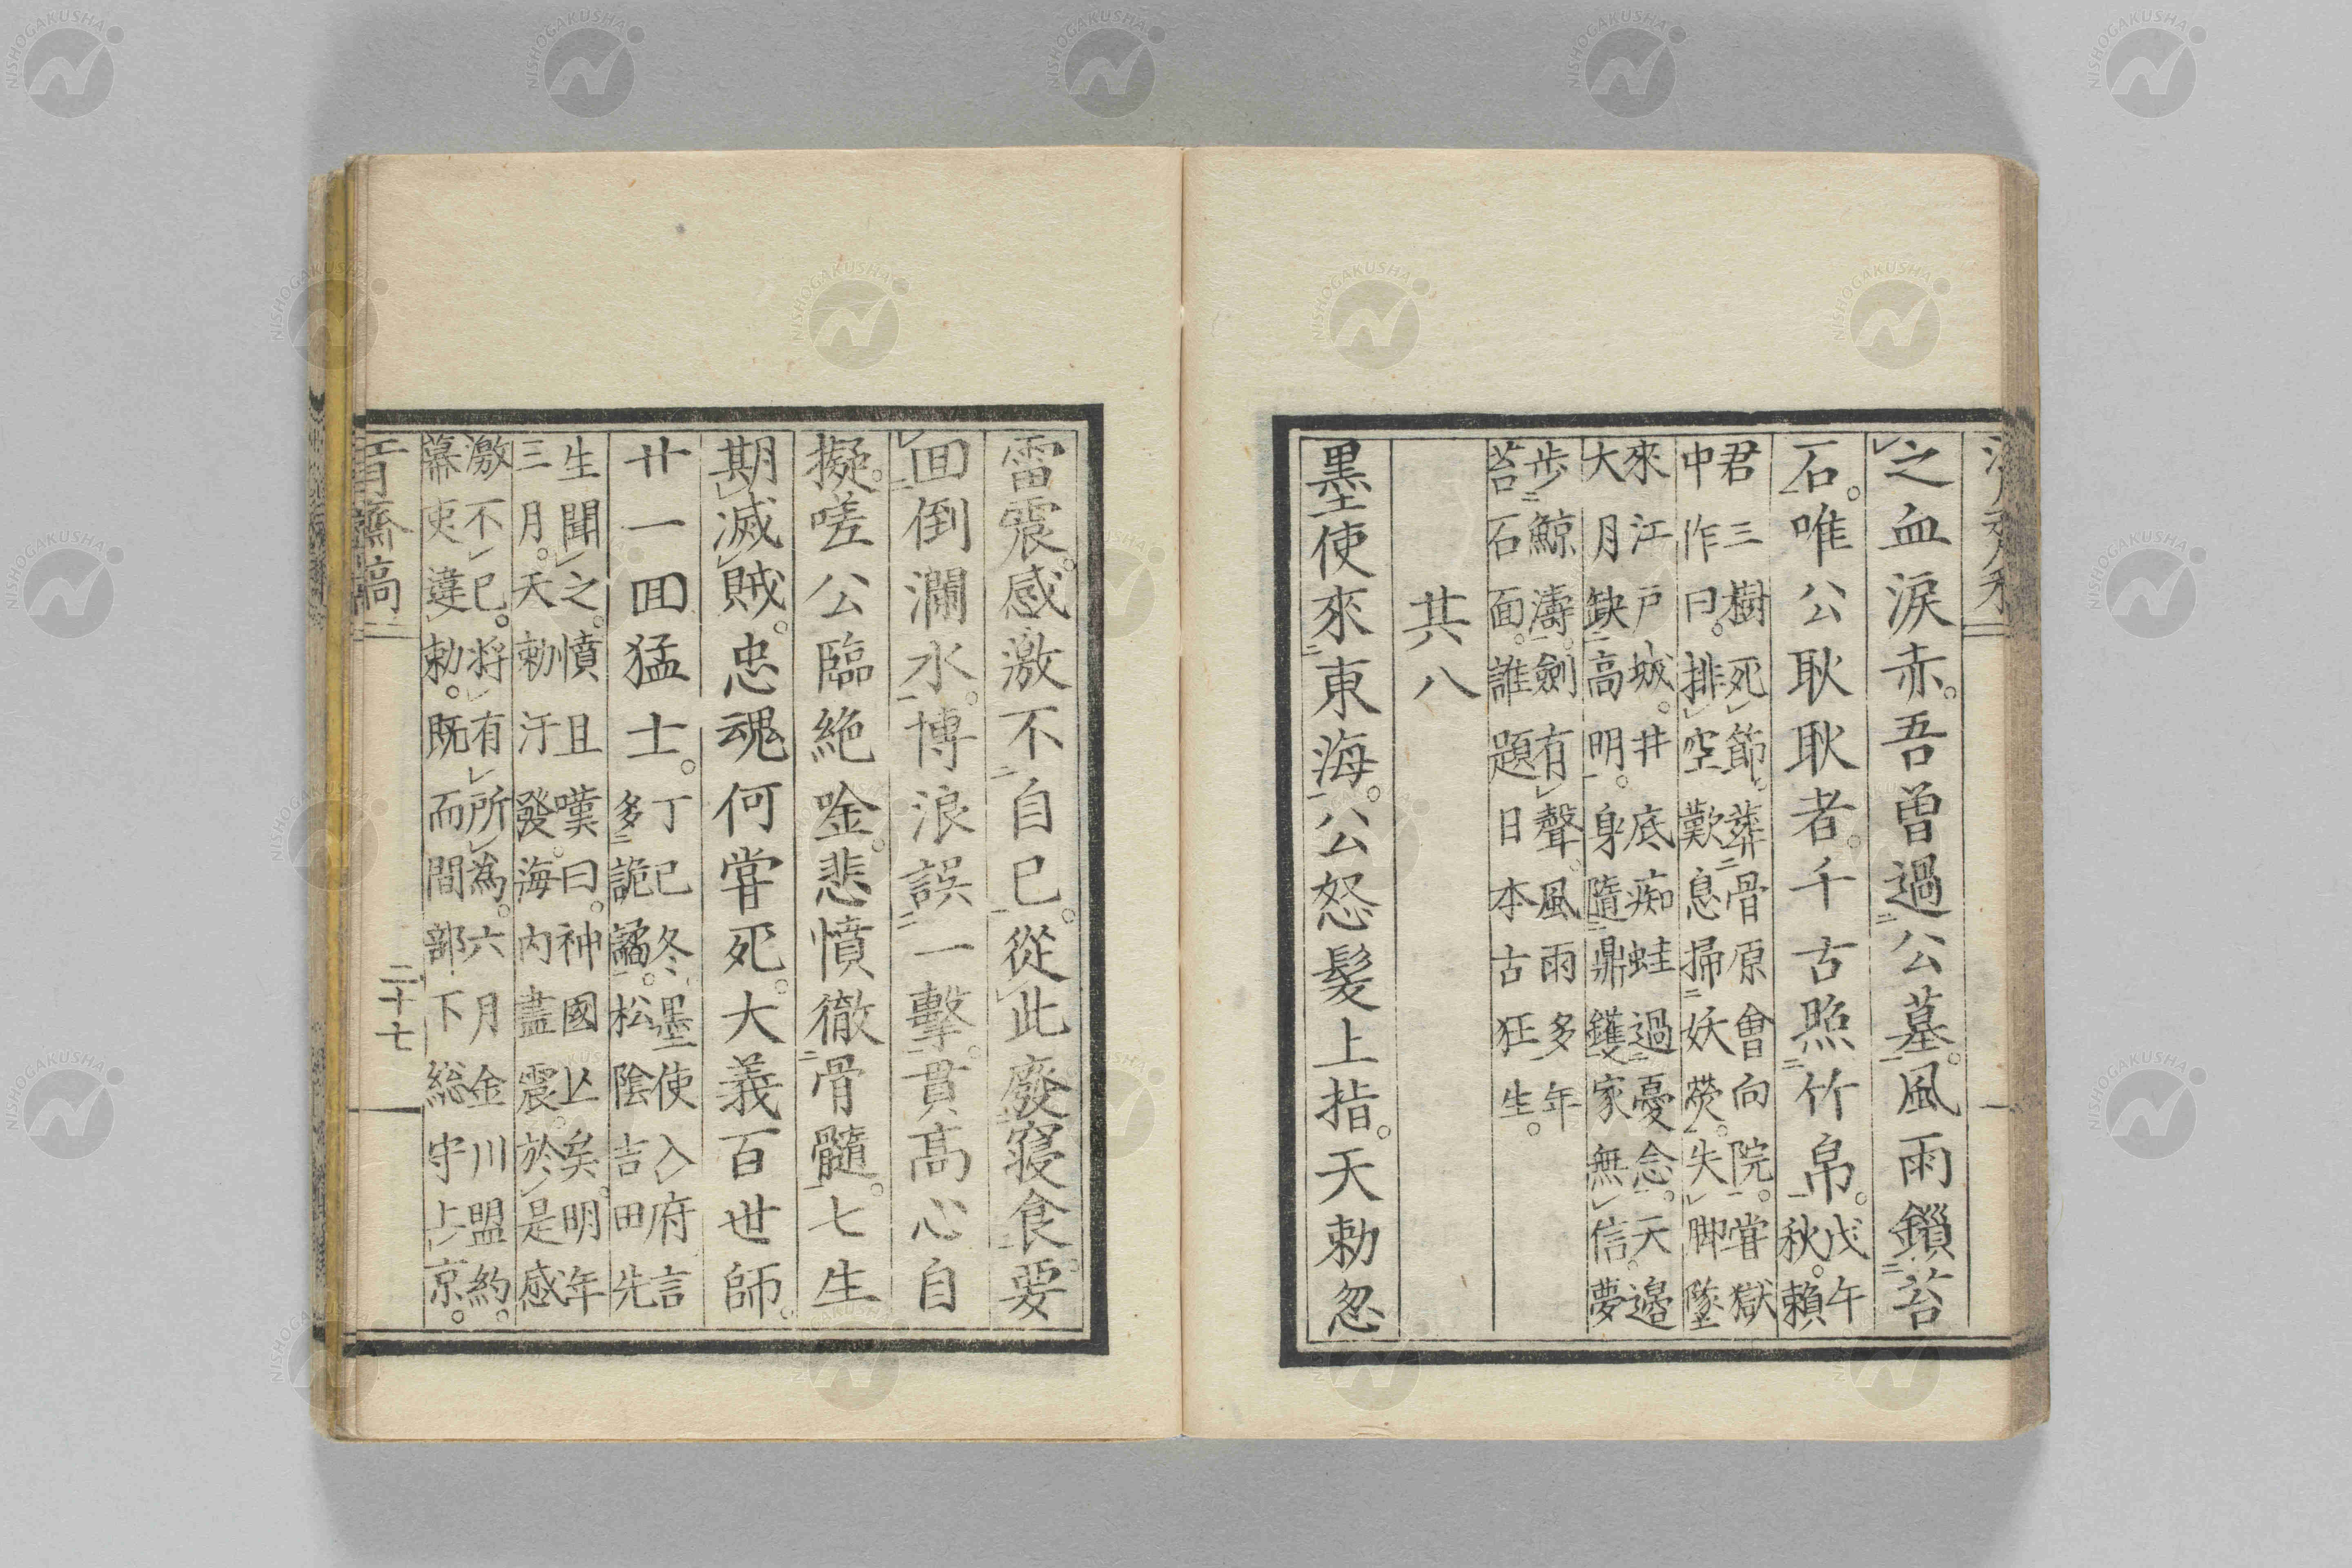 之血涙赤。吾曾過公墓。風雨鎻苔
石。唯公耿耿者。千古照竹帛。戊午
秋。賴
君三樹死節。葬骨原會向院。嘗獄
中作曰。排空歎息掃妖熒。失脚墜
來江戸城。井底痴蛙過憂念。天邉
大月缺高明。身隨鼎鑊家無信。夢
步鯨濤。劍有聲。風雨多年
苔石面。誰題日本古狂生。
其八
墨使來東海。公怒髮上指。天勅忽
雷震。感激不自已。從此廢寢食。要
回倒瀾水。博浪誤一擊。貫高心自
擬。嗟公臨絶唫。悲憤徹骨髓。七生
期滅賊。忠魂何甞死。大義百世師。
廿一回猛士。丁巳冬墨使入府言
多詭譎。松陰吉田先
生聞之。憤且嘆曰。神國亾矣。明年
三月。天勅汗發。海内盡震。於是感
激不已。將有所爲。六月金川盟約。
幕吏違勅。既而間部下総守上京。
二十七
NISHOGAKUSHA